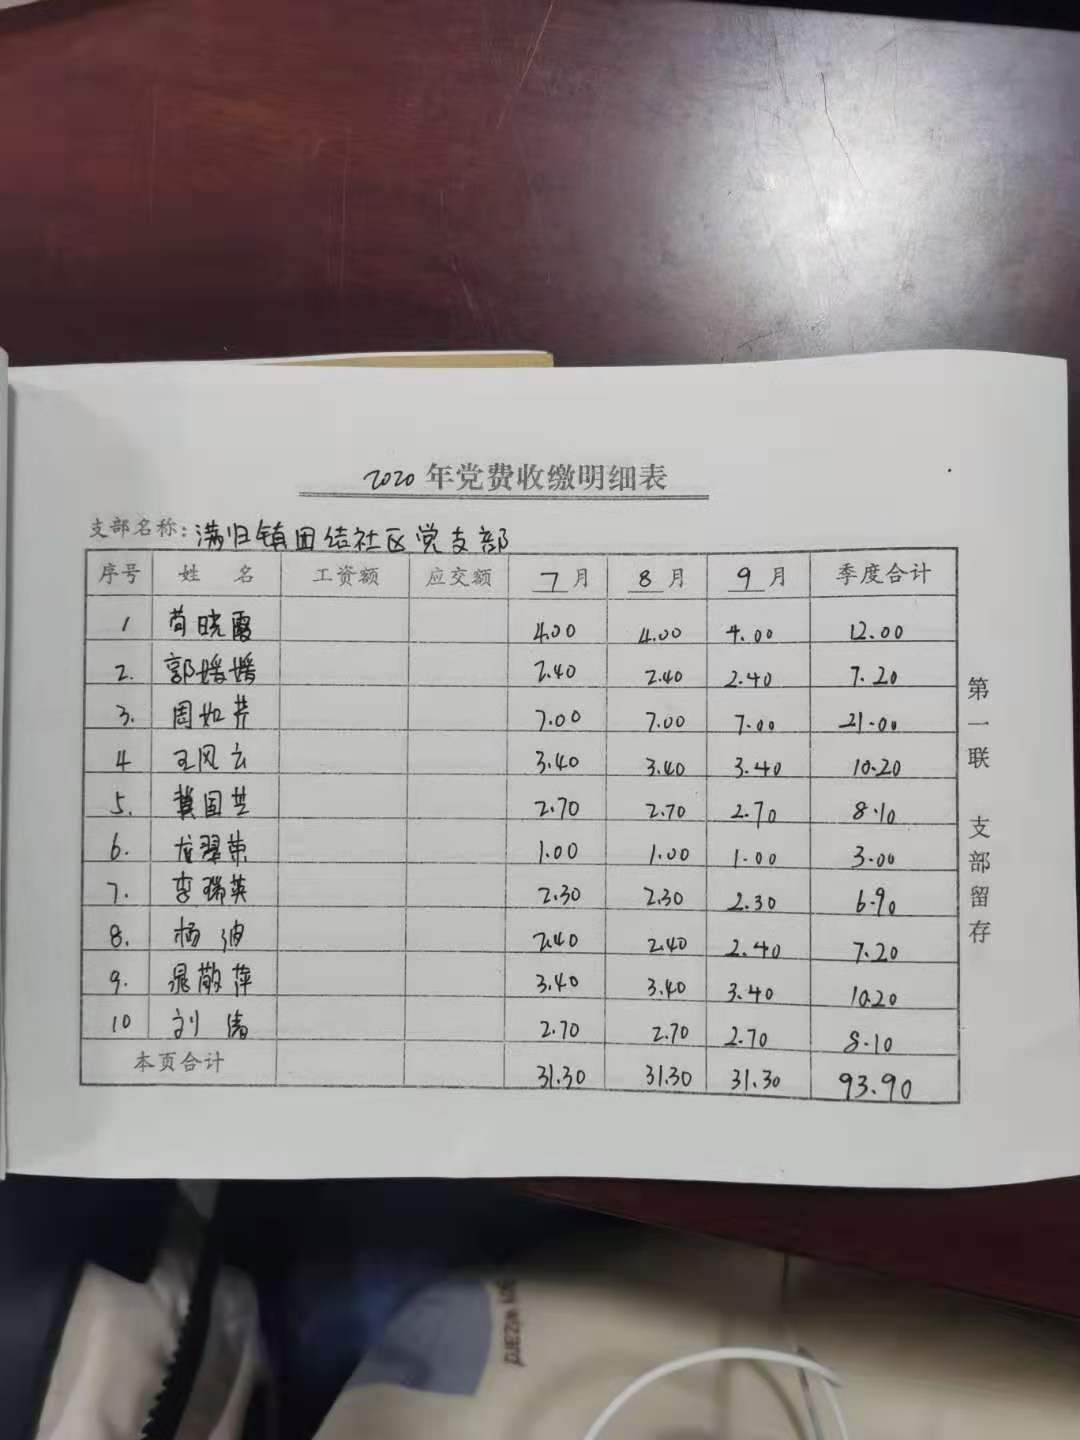 2020 年党费收缴明细表
支部名称：满归镇团结社区党支部
序号 姓 名 工资额 应交额 7 月 8 月 9 月 季度合计
1 苟晓霞 4.00 4.00 4.00 12.00
2. 郭媛媛 2.40 2.40 2.40 7.20
3. 周如芹 7.00 7.00 7.00 21.00
4 王风云 3.40 3.40 3.40 10.20
5. 冀国芝 2.70 2.70 2.70 8.10
6. 翠荣 1.00 1.00 1.00 3.00
7. 李瑞英 2.30 2.30 2.30 6.90
8. 杨波 2.40 2.40 2.40 7.20
9. 晁敬萍 3.40 3.40 3.40 10.20
10 刘 2.70 2.70 2.70 8.10
本页合计 31.30 31.30 31.30 93.90
第一联 支部留存